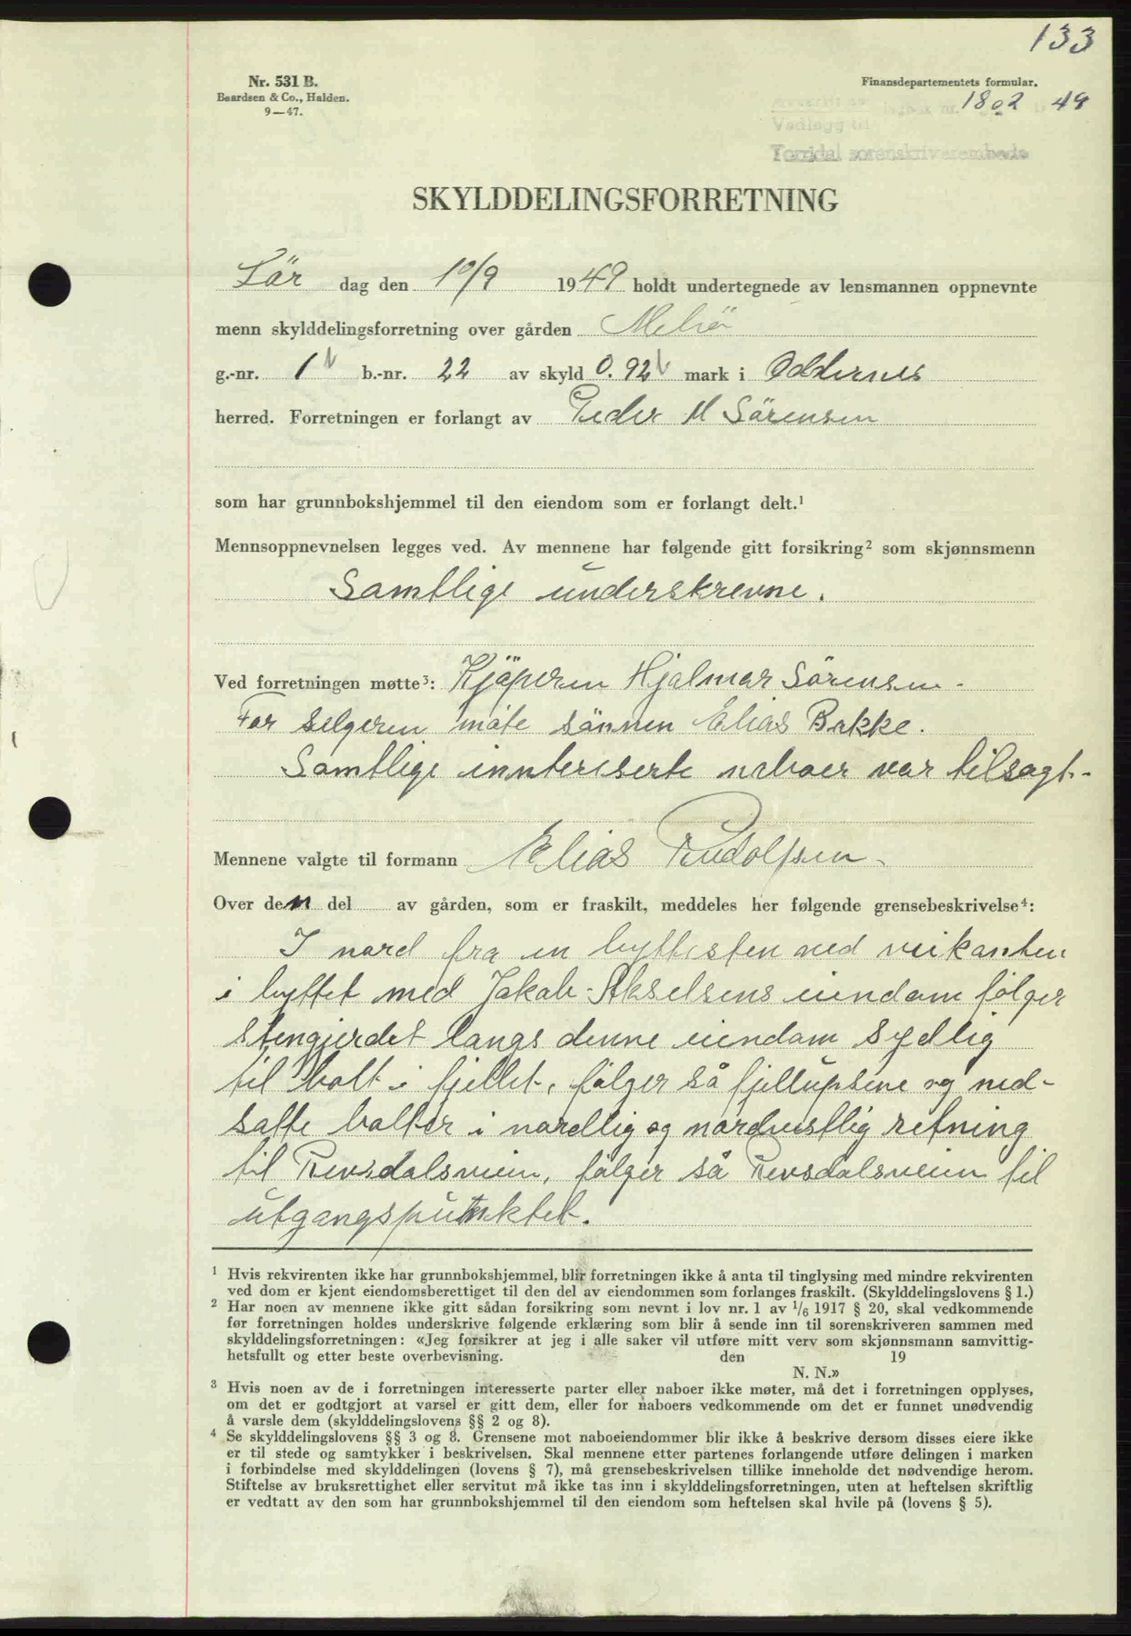 133
Nr. 531 B.
Baardsen & Co., Halden.
9—47.
Finansdepartementets formular.
1802 49
Vedlegg til
Torridal sorenskriverembede
SKYLDDELINGSFORRETNING
Lör dag den 10/9 1949 holdt undertegnede av lensmannen oppnevnte
menn skylddelingsforretning over gården
g.-nr. 1 b.-nr. 22 av skyld 0.92 mark i Oddernes
herred. Forretningen er forlangt av Peder M Sörensen
som har grunnbokshjemmel til den eiendom som er forlangt delt.¹
Mennsoppnevnelsen legges ved. Av mennene har følgende gitt forsikring² som skjønnsmenn
Samtlige underskrevne.
Ved forretningen møtte³: Kjöperen Hjalmar Sörensen -
For selgeren möte sönnen Elias Bakke.
Samtlige innteriserte naboer var tilsagt. -
Mennene valgte til formann Elias Rudolfsen -
Over den del av gården, som er fraskilt, meddeles her følgende grensebeskrivelse⁴:
I nord fra en byttesten ved veikanten
i byttet med Jakob Akselsens eiendom fölger
stengjerdet langs denne eiendom sydlig
til bolt i fjellet, fölger så fjellupsene og ned-
satte bolter i nordlig og nordvestlig retning
til Revsdalsveien, fölger så Revsdalsveien til
utgangspunktet.
¹ Hvis rekvirenten ikke har grunnbokshjemmel, blir forretningen ikke å anta til tinglysing med mindre rekvirenten
ved dom er kjent eiendomsberettiget til den del av eiendommen som forlanges fraskilt. (Skylddelingslovens § 1.)
² Har noen av mennene ikke gitt sådan forsikring som nevnt i lov nr. 1 av 1/6 1917 § 20, skal vedkommende
før forretningen holdes underskrive følgende erklæring som blir å sende inn til sorenskriveren sammen med
skylddelingsforretningen: «Jeg forsikrer at jeg i alle saker vil utføre mitt verv som skjønnsmann samvittig-
hetsfullt og etter beste overbevisning. den 19
N. N.»
³ Hvis noen av de i forretningen interesserte parter eller naboer ikke møter, må det i forretningen opplyses,
om det er godtgjort at varsel er gitt dem, eller for naboers vedkommende om det er funnet unødvendig
å varsle dem (skylddelingslovens §§ 2 og 8).
⁴ Se skylddelingslovens §§ 3 og 8. Grensene mot naboeiendommer blir ikke å beskrive dersom disses eiere ikke
er til stede og samtykker i beskrivelsen. Skal mennene etter partenes forlangende utføre delingen i marken
i forbindelse med skylddelingen (lovens § 7), må grensebeskrivelsen tillike inneholde det nødvendige herom.
Stiftelse av bruksrettighet eller servitut må ikke tas inn i skylddelingsforretningen, uten at heftelsen skriftlig
er vedtatt av den som har grunnbokshjemmel til den eiendom som heftelsen skal hvile på (lovens § 5).